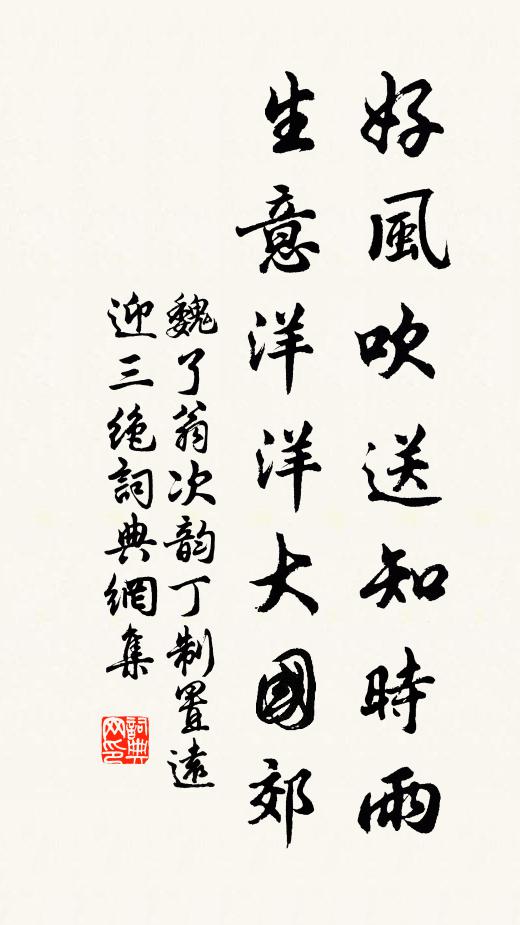 好風吹送知時雨
生意洋洋大國郊
魏了翁次韵丁制置遠
迎三绝詞典網集
詞典
网印